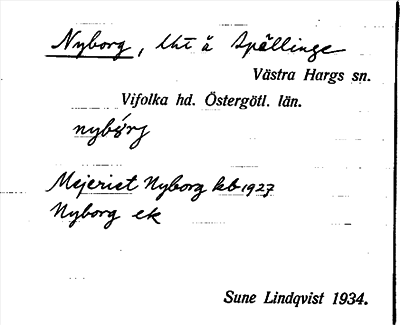 Nyborg, lht å Spällinge
Västra Hargs sn.
Vifolka hd. Östergötl. län.
nybórj
Mejeriet Nyborg kb 1927
Nyborg ek
Sune Lindqvist 1934.